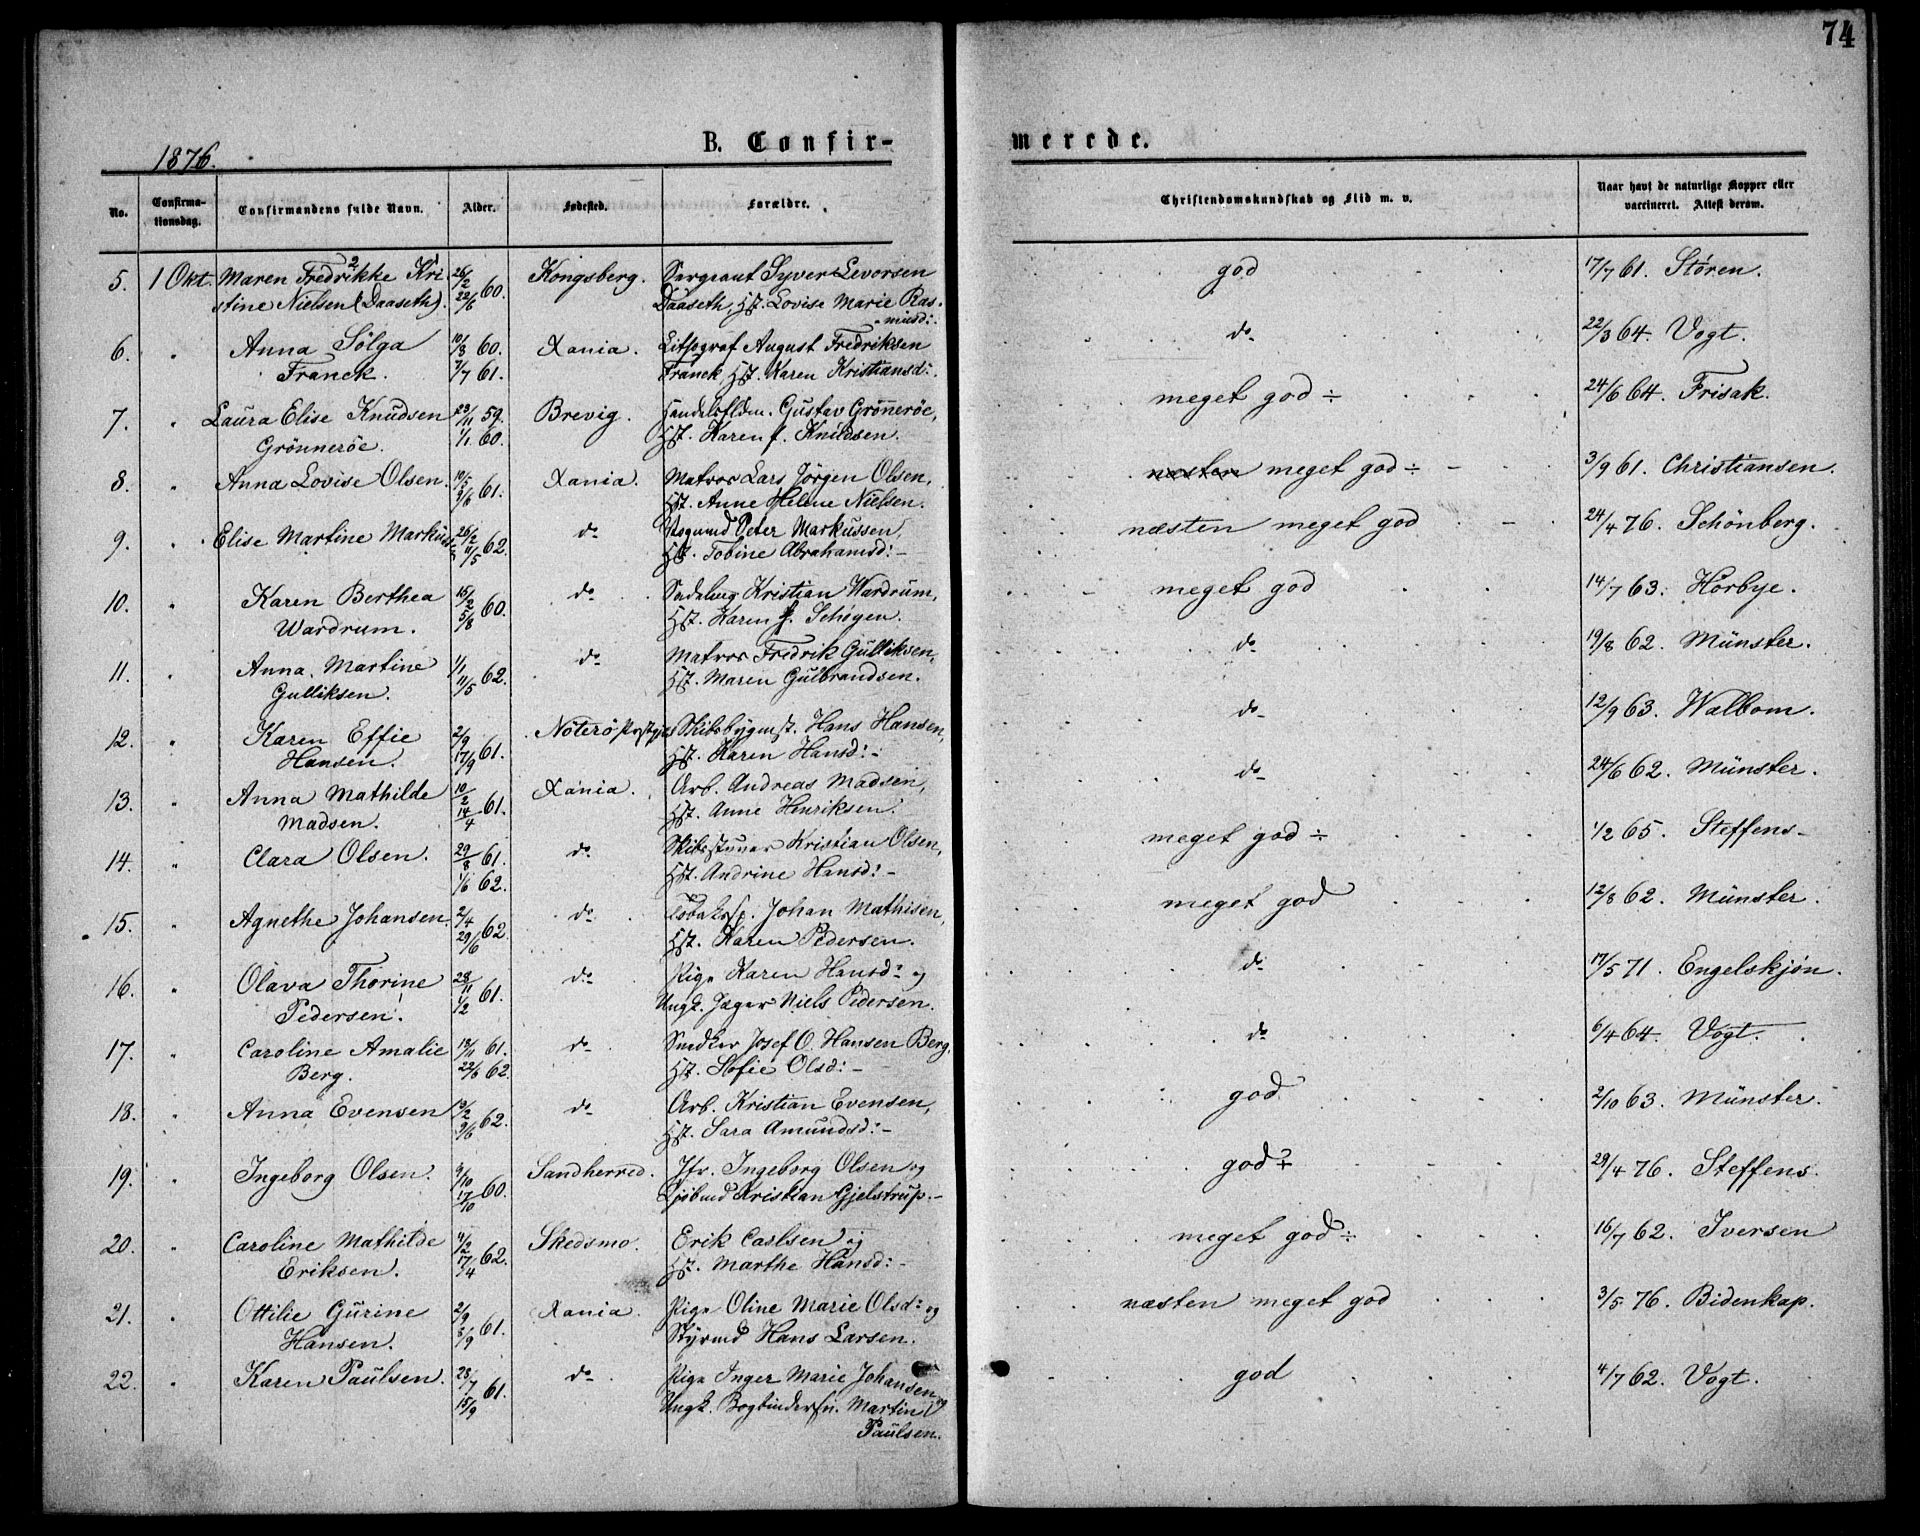 74
1876.
B. Confir-
merede.
No.
Confirma-
tionsdag.
Confirmandens fulde Navn.
Alder.
Fødested.
Forældre.
Christendomskundskab og Flid m. v.
Naar havt de naturlige Kopper eller
vaccineret. Attest derom.
5. 1 Okt. Maren Fredrikke Kri 26/2 60. Kongsberg. Sergeant Syver Levorsen god 17/7 61. Støren.
stine Nielsen (Daaseth). 22/6 Daaseth, Hst. Lovise Marie Ras-
musd:
6. " Anna Sølga 10/8 60. Xania. Lithograf August Fredriksen do 22/3 64. Vogt.
Franck. 7/7 61. Franck Hst. Karen Kristiansd:
7. " Laura Elise Knudsen 23/11 59. Brevig. Handelsfldm. Gustav Grønnerøe, meget god ÷ 24/6 64. Frisak.
Grønnerøe. 1/1 60. Hst. Karen f. Knudsen.
8. " Anna Lovise Olsen. 10/5 61. Xania. Matros Lars Jørgen Olsen, næsten meget god ÷ 3/9 61. Christiansen.
3/6 Hst. Anne Helene Nielsen.
9. " Elise Martine Markus 26/2 62. do Peter Markussen, næsten meget god 24/4 76. Schönberg.
11/5 Hst. Tobine Abrahamsd: -
10. " Karen Berthea 15/2 60. do Sadelmg Kristian Wardrum, meget god 14/7 63. Hørbye.
Wardrum. 5/8 Hst. Karen f. Schøgen.
11. " Anna Martine 1/1 62. do Matros Fredrik Gulliksen, do 19/8 62. Münster.
Gulliksen. 11/5 Hst. Maren Gulbrandsen.
12. " Karen Effie 2/9 61. Nøterø Skibsbygmst. Hans Hansen, do 12/9 63. Walbom.
Hansen. 17/9 Hst. Karen Hansd: -
13. " Anna Mathilde 10/2 61. Xania. Arb. Andreas Madsen, do 24/6 62. Münster.
Madsen. 14/4 Hst. Anne Henriksen.
14. " Clara Olsen. 29/8 61. do Skibstuner Kristian Olsen, meget god ÷ 1/2 65. Steffens-
1/6 62. Hst. Andrine Hansd: -
15. " Agnethe Johansen. 2/4 62. do Tobaksp. Johan Mathisen, meget god 12/8 62. Münster.
29/6 Hst. Karen Pedersen.
16. " Olava Thorine 28/11 61. do Pige Karen Hansd: og do 17/5 71. Engelskjøn.
Pedersen. 1/2 Ungk. Jæger Niels Pedersen.
17. " Caroline Amalie 18/11 61. do Snedker Josef O. Hansen Berg, do 6/4 64. Vogt.
Berg. 22/6 62. Hst. Sofie Olsd: -
18. " Anna Evensen 12/2 62. do Arb. Kristian Evensen, god 2/10 63. Münster.
9/6 Hst. Sara Amundsd: -
19. " Ingeborg Olsen. 9/10 60. Sandherred. Jfr. Ingeborg Olsen og god ? ÷ 29/4 76. Steffens.
17/10 Sjømd Kristian Gjelstrup. -
20. " Caroline Mathilde 11/2 62. Skedsmo. Erik Carlsen og meget god ÷ 16/7 62. Iversen
Eriksen. 17/4 Hst. Marthe Hansd: -
21. " Ottilie Gurine 2/9 61. Xania. Pige Oline Marie Olsd: og næsten meget god 3/5 76. Bidenkap.
Hansen. 8/9 Styrmd Hans Larsen.
22. " Karen Paulsen. 28/7 61. do Pige Inger Marie Johansen og god 4/7 62. Vogt.
15/9 Ungk. Bogbindersv. Martin
Paulsen.